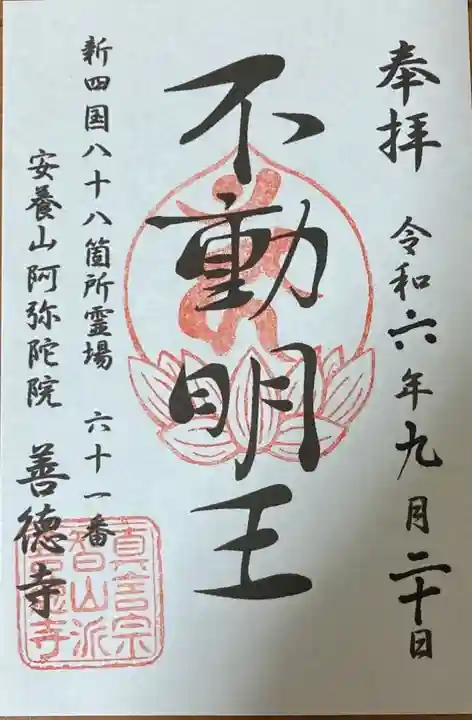 奉拝 令和六年九月二十日
不動明王
新四国八十八箇所霊場 六十一番
安養山阿弥陀院 善徳寺
真言宗
智山派
善徳寺